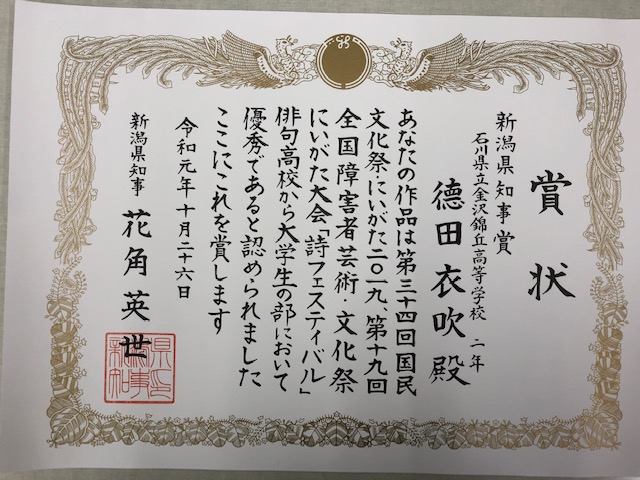 賞状
新潟県知事賞
石川県立金沢錦丘高等学校 二年
德田衣吹殿
あなたの作品は第三十四回国民
文化祭にいがた二〇一九、第十九回
全国障害者芸術・文化祭
にいがた大会「詩フェスティバル」
俳句高校から大学生の部において
優秀であると認められました
ここにこれを賞します
令和元年十月二十六日
新潟県知事 花角英世